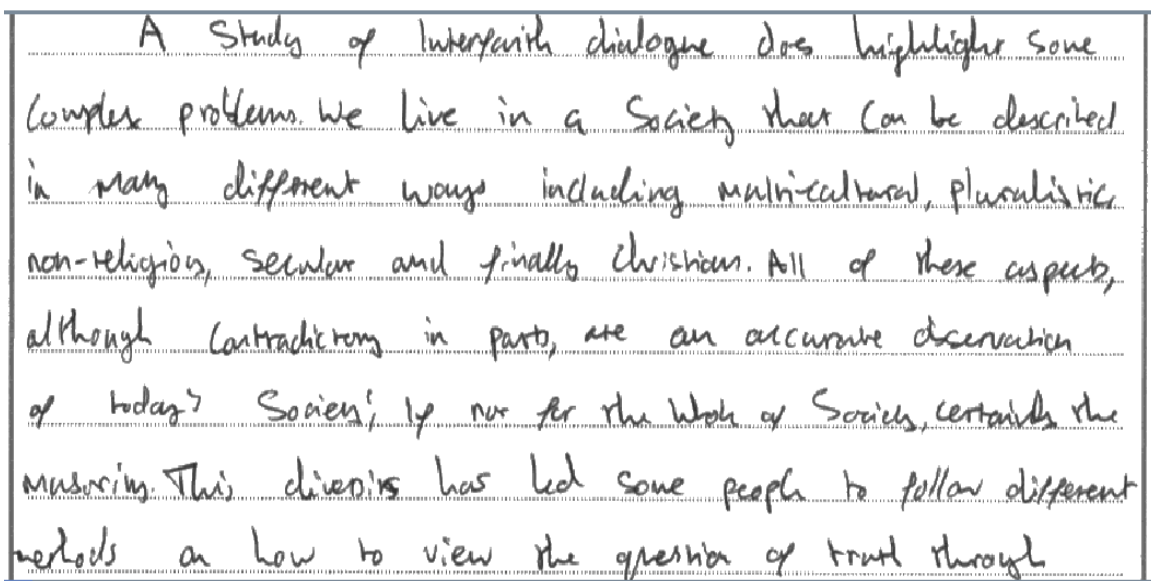 A Study of Interfaith dialogue does highlight some
complex problems. We live in a Society that can be described
in many different ways including multi-cultural, pluralistic,
non-religious, secular and finally Christian. All of these aspects,
although contradictory in parts, are an accurate observation
of today's Society; if not for the whole of Society, certainly the
majority. This diversity has led some people to follow different
methods on how to view the question of truth through